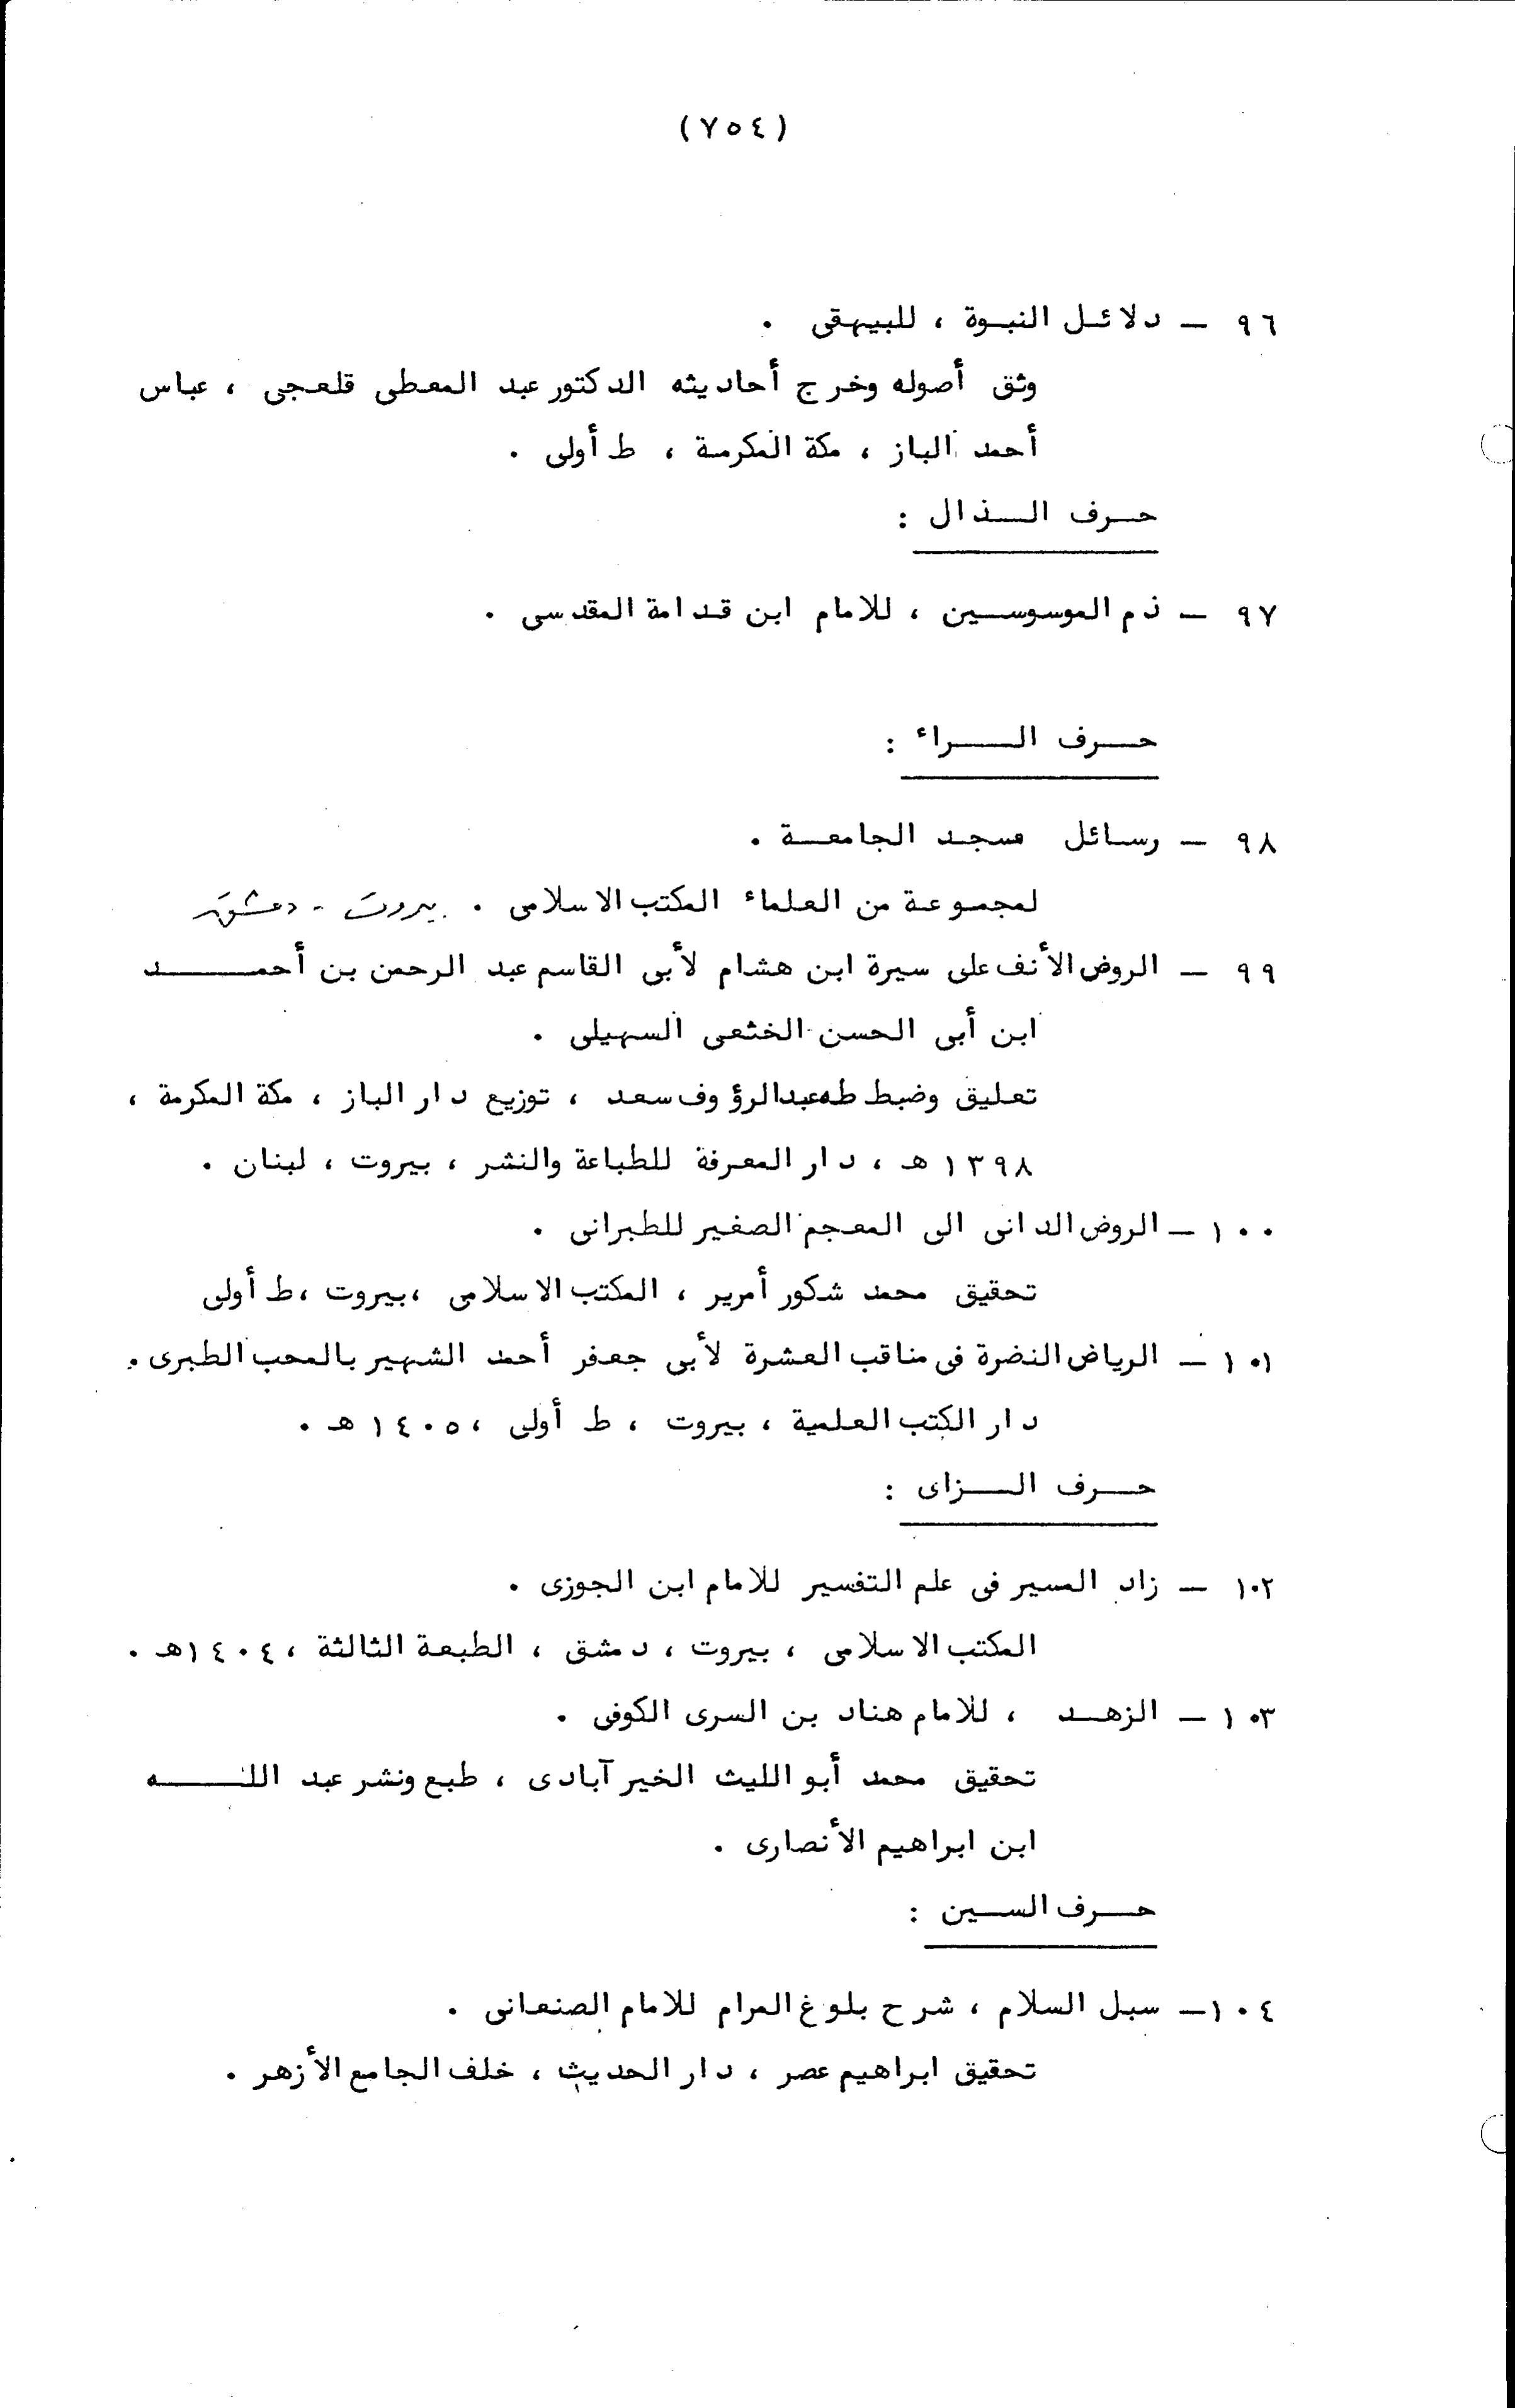 (٧٥٤)
٩٦ – دلائل النبوة ، للبيهقى .
وثق أصوله وخرج أحاديثه الدكتور عبد المعطى قلعجى ، عباس
أحمد الباز ، مكة المكرمة ، ط أولى .
حرف الذال :
٩٧ – ذم الموسوسين ، للامام ابن قدامة المقدسى .
حرف الراء :
٩٨ – رسائل مسجد الجامعة .
لمجموعة من العلماء المكتب الاسلامى . بيروت - دمشق
٩٩ – الروض الأنف على سيرة ابن هشام لأبى القاسم عبد الرحمن بن أحمد
ابن أبى الحسن الخثعى السهيلى .
تعليق وضبط طه عبدالرؤوف سعد ، توزيع دار الباز ، مكة المكرمة ،
١٣٩٨ هـ ، دار المعرفة للطباعة والنشر ، بيروت ، لبنان .
١٠٠ – الروض الدانى الى المعجم الصغير للطبرانى .
تحقيق محمد شكور أمرير ، المكتب الاسلامى ،بيروت ،ط أولى
١٠١ – الرياض النضرة فى مناقب العشرة لأبى جعفر أحمد الشهير بالمحب الطبرى .
دار الكتب العلمية ، بيروت ، ط أولى ، ١٤٠٥ هـ .
حرف الزاى :
١٠٢ – زاد المسير فى علم التفسير للامام ابن الجوزى .
المكتب الاسلامى ، بيروت ، دمشق ، الطبعة الثالثة ، ١٤٠٤هـ .
١٠٣ – الزهد ، للامام هناد بن السرى الكوفى .
تحقيق محمد أبو الليث الخير آبادى ، طبع ونشر عبد الله
ابن ابراهيم الأنصارى .
حرف السين :
١٠٤– سبل السلام ، شرح بلوغ المرام للامام الصنعانى .
تحقيق ابراهيم عصر ، دار الحديث ، خلف الجامع الأزهر .